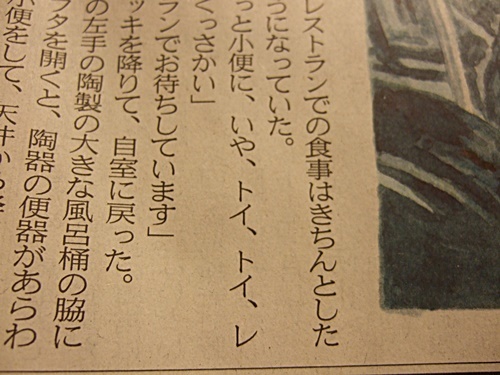 レストランでの食事はきちんとした
うになっていた。
っと小便に、いや、トイ、トイ、レ
くっさかい」
ランでお待ちしています」
ッキを降りて、自室に戻った。
の左手の陶製の大きな風呂桶の脇に
フタを開くと、陶器の便器があらわ
小便をして、天井から